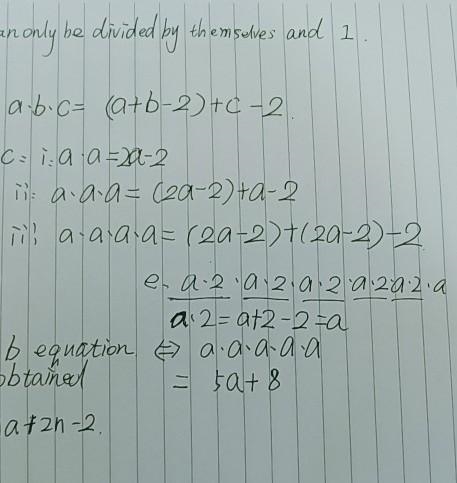 an only be divided by themselves and 1.
a·b·c= (a+b-2)+c-2.
c= i: a·a=2a-2
ii: a·a·a= (2a-2)+a-2
iii: a·a·a·a= (2a-2)+(2a-2)-2
e. a·2·a·2·a·2·a·2·a·2·a
a·2=a+2-2=a
b equation ⇔ a·a·a·a·a
obtained = 5a+8
a+2n-2.